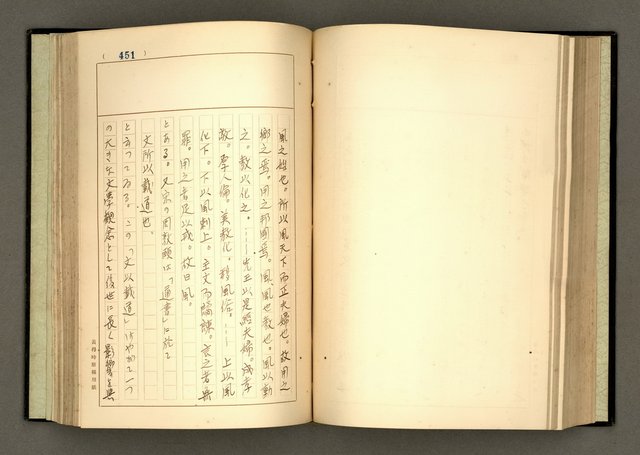 ( 451 )
風之始也。所以風天下而正夫婦也。故用之
鄉之焉。用之邦國焉。風、風也教也。風以動
之。教以化之。……先王以是經夫婦。成孝
敬。厚人倫。美教化。移風俗。……上以風
化下。下以風刺上。主文而譎諫。言之者無
罪。聞之者足以戒。故曰風。
とある。又宋の周敦頤は「通書」に於て
文所以載道也。
となつてゐる。この「文以載道」はやがて一つ
の大きな文學觀念として後世に長く影響を與